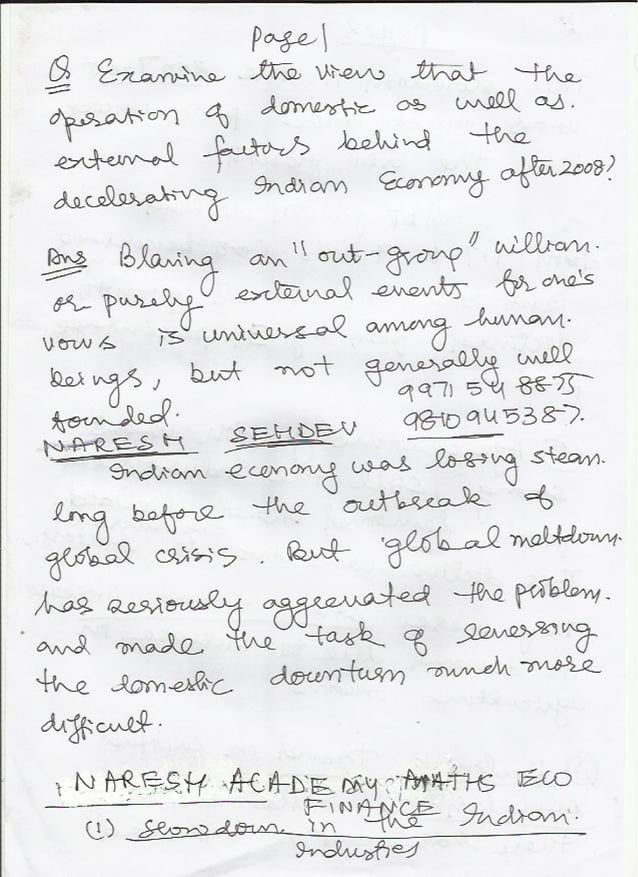 Page 1
Q Examine the view that the
operation of domestic as well as.
external factors behind the
decelerating Indian Economy after 2008?
Ans Blaming an "out-group" villian.
or purely external events for one's
vows is universal among human.
beings, but not generally well
9971 54 88 55
founded.
9810 945387.
NARESH SEHDEV
Indian economy was losing steam.
long before the outbreak of
global crisis. But global meltdown.
has seriously aggreuated the problem.
and made the task of reversing
the domestic downturn much more
difficult.
NARESH ACADEMY MATHS ECO
FINANCE
(1) Slowdown in the Indian.
Industries